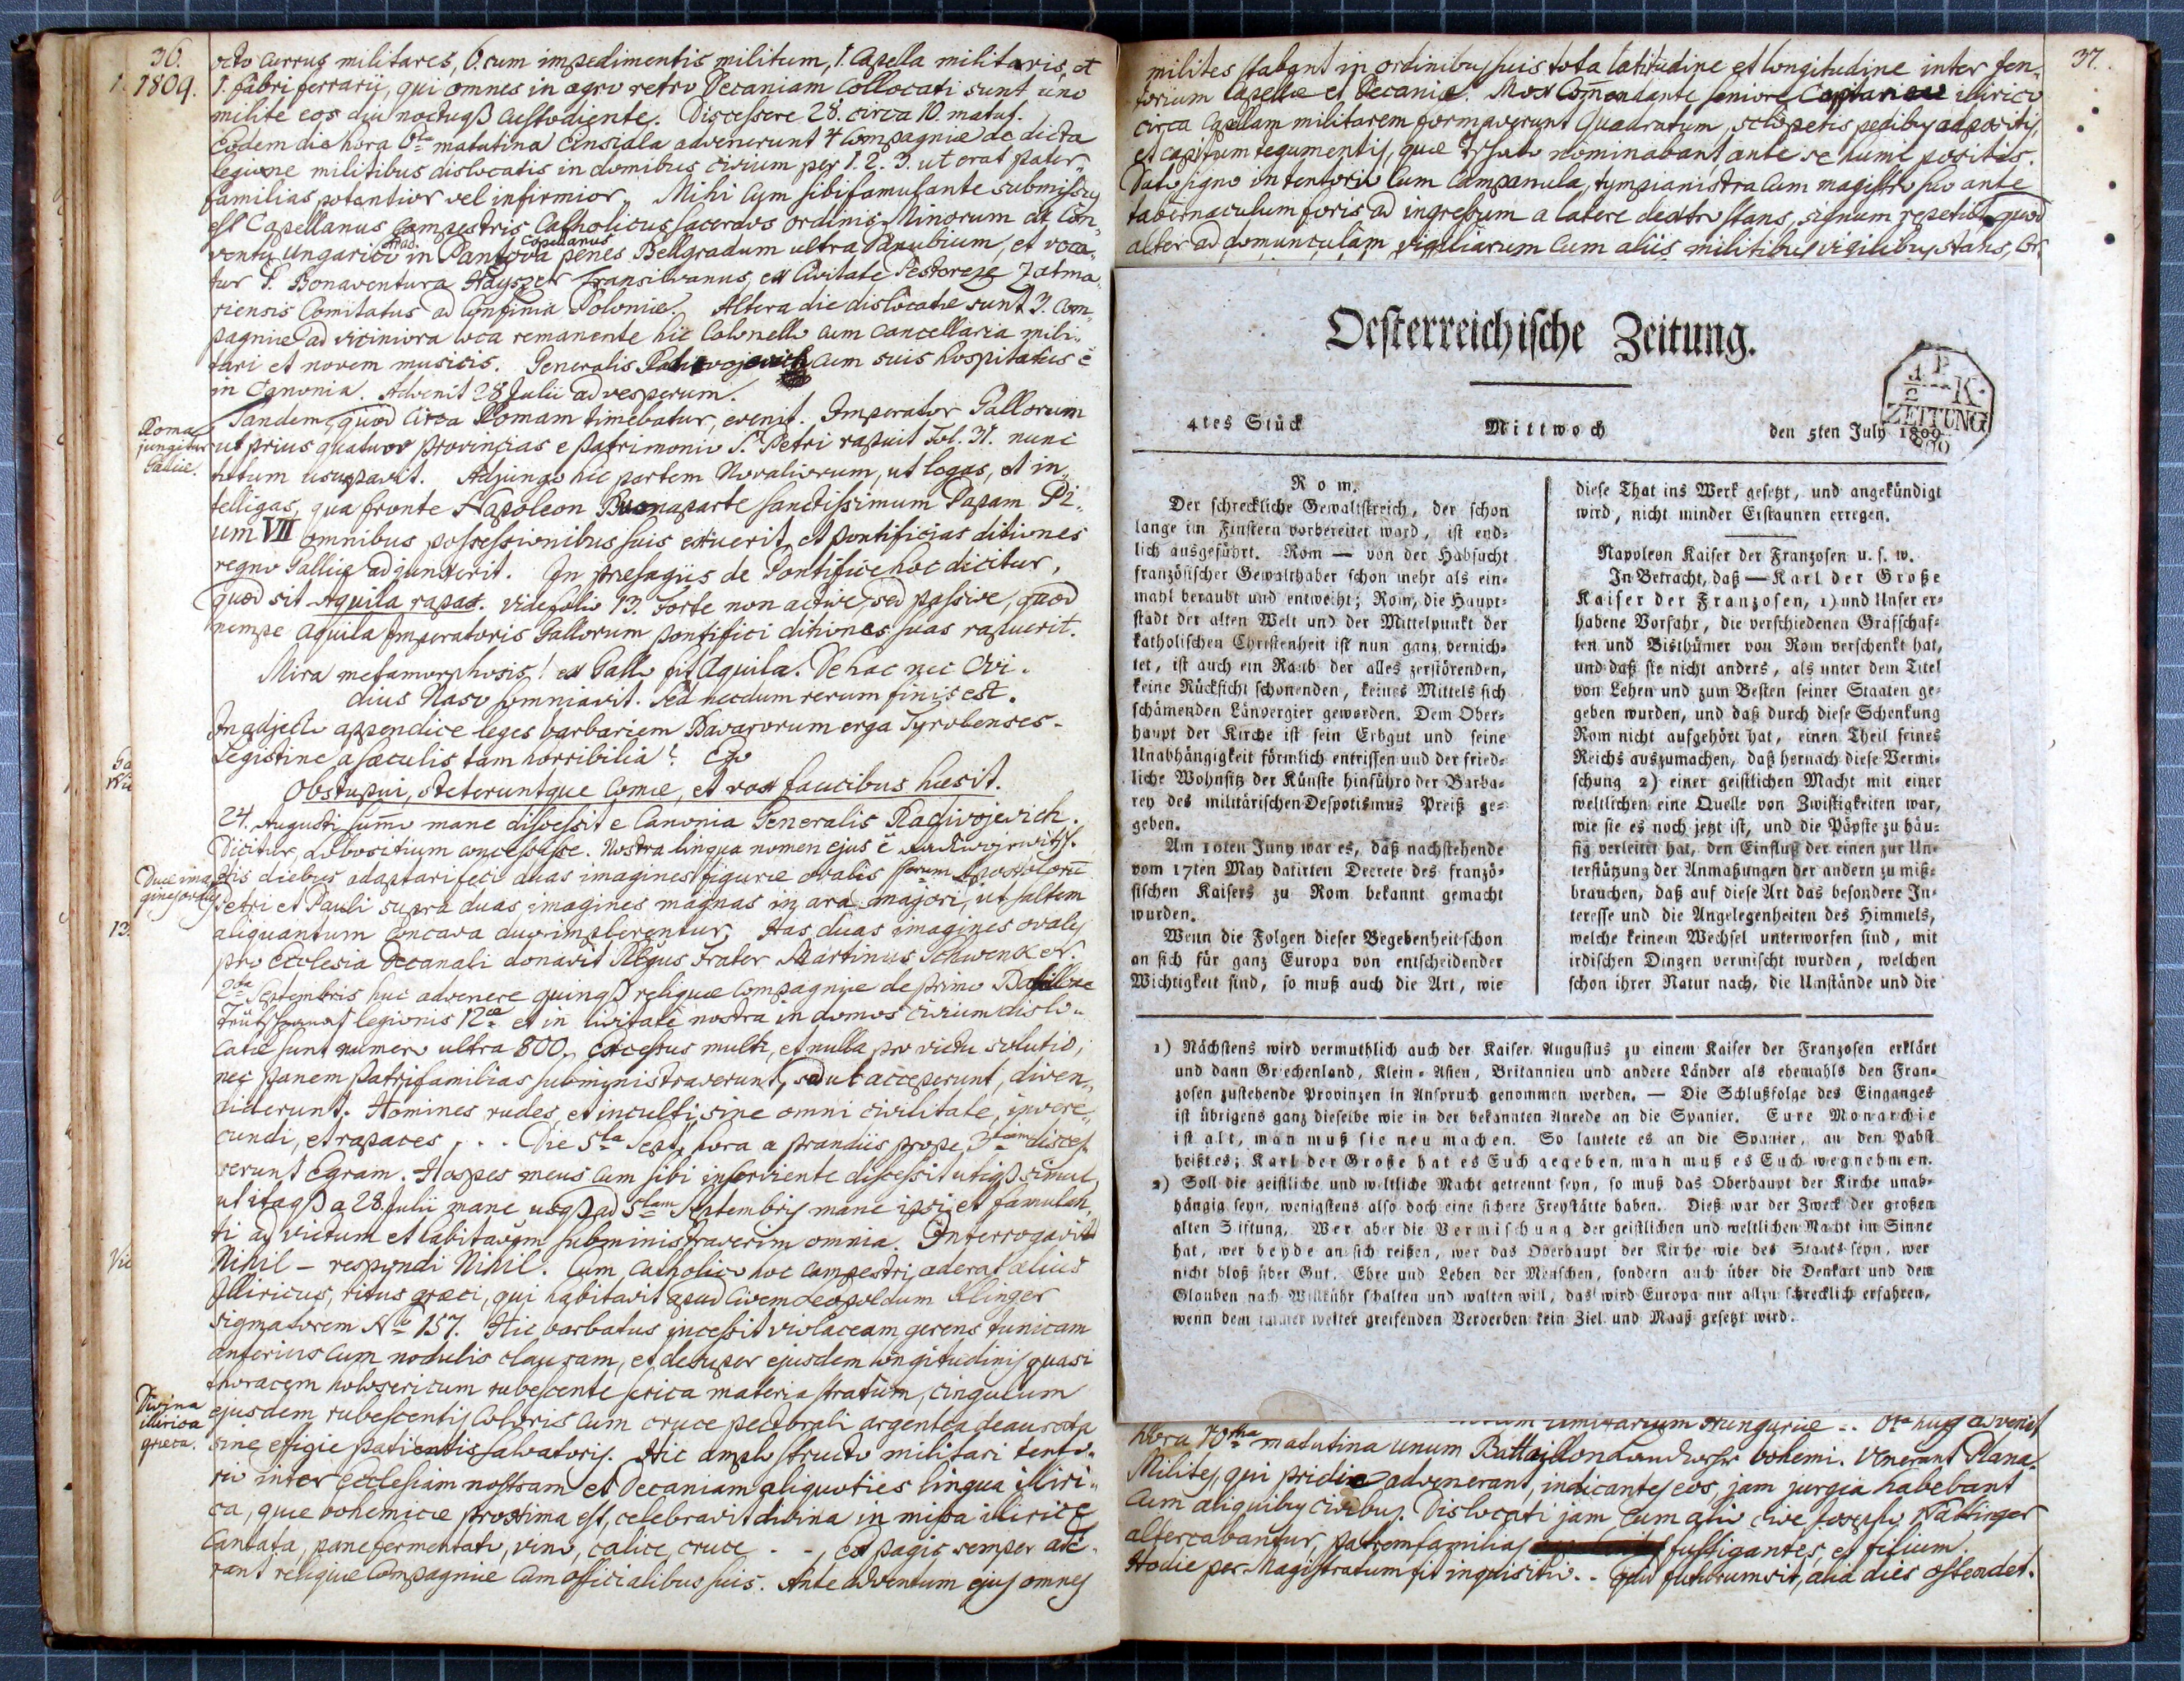 36.
1809.
octo currus militares, 6. cum impedimentis militum, 1. Capella militaris, et
1. fabri ferrarii, qui omnes in agro retro Decaniam collocati sunt uno
milite eos diu noctuqß custodiente. Discessere 28. circa 10. matut.
Eodem die hora 6ta matutina advenerunt 4 Compagniæ de dicta
legione militibus dislocatis in domibus civium per 1. 2. 3. ut erat pater„
familias potentior vel infirmior. Mihi cum sibi famulante submissus
est Capellanus Campestris Catholicus sacerdos ordinis Minorum ex Con„
ventu Ungarico in Panzova penes Bellgradum ultra Danubium, et voca„
tur P. Bonaventura Transilvanus, ex Civitate
riensis Comitatus ad Confinia Poloniæ. Altera die dislocatæ sunt 3. Com„
pagniæ ad viciniora loca remanente hic Colonello cum Cancellaria mili„
tari et novem musicis. Generalis cum suis hospitatus ē
in Canonia. Advenit 28 Julii ad vesperum.
Roma
jungitur
Galliæ.
Tandem, quod circa Romam timebatur, evenit. Imperator Gallorum
ut prius quatuor provincias e patrimonio S. Petri rapuit fol. 31. nunc
totum usurpavit. Adjungo hic partem Novaliorum, ut legas, et in„
telligas, qua fronte Napoleon Buonaparte sanctissimum Papam Pi„
um VII omnibus possessionibus suis exuerit, et pontificias ditiones
regno Galliæ adjunxerit. In præsagiis de Pontifice hoc dicitur,
quod sit Aquila rapax. vide folio 13. Forte non active, sed passive, quod
nempe Aquila Imperatoris Gallorum pontifici ditiones suas rapuerit.
Mira metamorphosis! ex Gallo fit Aquila. De hac nec Ovi„
dius Naso somniavit. Sed necdum rerum finis est.
In adjecto appendice leges barbariem Bavarorum erga Tyrolenses.
Legistine a sæculis tam horribilia? Ego
Obstupui, steteruntque Comæ, et vox faucibus hæsit.
24. Augusti summo mane discessit e Canonia Generalis Radivojevich.
Dicitur, concessisse. Nostra lingua nomen ejus ē
His diebus adaptari feci duas imagines figuræ ovalis Apostolorū
Petri et Pauli supra duas imagines magnas in ara majori, ut saltem
aliquantum concava duo implerentur. Has duas imagines ovales
pro Ecclesia Decanali donavit Frater Martinus Schwenker.
2da Septembris huc advenere quinqß reliquæ Compagniæ de primo
legionis 12æ et in civitate nostra in domos civium dislo„
catæ sunt numero ultra 800. Excessus multi, et nulla pro victu solutio,
nec panem patrifamilias subministraverunt, sed ut acceperunt, diven„
diderunt. Homines rudes, et inculti, sine omni civilitate, invere„
cundi, et rapaces . . . Die 5ta Sept. hora a prandiis prope 3tiam disces„
serunt Egram. Hospes meus cum sibi inserviente discessit utiqß simul,
ut itaqß a 28. Julii mane usqß ad 5tam Septembris mane ipsi et famulan„
ti ad victum et habitaõm subministraverim omnia. Interrogavit
Nihil – respondi Nihil. Cum Catholico hoc campestri aderat alius
Illiricus, ritus græci, qui habitavit apud Civem Leopoldum Klinger
sigmatorem No 157. Hic barbatus incessit violaceam gerens tunicam
anterius cum nodulis clausam, et desuper ejusdem longitudinis quasi
thoracem holosericum rubescente serica materia stratum, cingulum
Divina
illirica
græca.
ejusdem rubescentis Coloris cum cruce pectorali argentea deaurata
sine effigie patientis salvatoris. Hic amplo structo militari tento„
rio inter Ecclesiam nostram et Decaniam aliquoties lingua illiri„
ca, quæ bohemicæ proxima est, celebravit divina in missa illirice
cantata, pane fermentato, vino, calice, cruce . . , ex pagis semper ade„
rant reliquæ Compagniæ cum officialibus suis. Ante adventum ejus omnes
37.
milites stabant in ordinibus suis tota latitudine et longitudine inter ten„
torium Capellæ et Decaniæ. Mox Comendante seniore illirico
circa Capellam militarem formaverunt Quadratum, sclopetis pedibus adpositis,
et capitum tegumentis, quæ nominabant ante se humi positis.
Dato signo in tentorio cum Campanula, tympanistra cum magistro suo ante
tabernaculum foris ad ingressum a latere dextro stans, signum repetiit, quod
alter ad domunculam vigiliarum cum aliis militibus vigilibus stans,
Oesterreichische Zeitung.
4tes Stück Mittwoch den 5ten July 1809
P.
K.
ZEITUNG
Rom.
Der schreckliche Gewaltstreich, der schon
lange im Finstern vorbereitet ward, ist end-
lich ausgeführt. Rom — von der Habsucht
französischer Gewalthaber schon mehr als ein-
mahl beraubt und entweiht; Rom, die Haupt-
stadt der alten Welt und der Mittelpunkt der
katholischen Christenheit ist nun ganz vernich-
tet, ist auch ein Raub der alles zerstörenden,
keine Rücksicht schonenden, keines Mittels sich
schämenden Ländergier geworden. Dem Ober-
haupt der Kirche ist sein Erbgut und seine
Unabhängigkeit förmlich entrissen und der fried-
liche Wohnsitz der Künste hinführo der Barba-
rey des militärischen Despotismus Preiß ge-
geben.
Am 10ten Juny war es, daß nachstehende
vom 17ten May datirten Decrete des franzö-
sischen Kaisers zu Rom bekannt gemacht
wurden.
Wenn die Folgen dieser Begebenheit schon
an sich für ganz Europa von entscheidender
Wichtigkeit sind, so muß auch die Art, wie
diese That ins Werk gesetzt, und angekündigt
wird, nicht minder Erstaunen erregen.
Napoleon Kaiser der Franzosen u. s. w.
In Betracht, daß — Karl der Große
Kaiser der Franzosen, 1) und Unser er-
habene Vorfahr, die verschiedenen Grafschaf-
ten und Bisthümer von Rom verschenkt hat,
und daß sie nicht anders, als unter dem Titel
von Lehen und zum Besten seiner Staaten ge-
geben wurden, und daß durch diese Schenkung
Rom nicht aufgehört hat, einen Theil seines
Reichs auszumachen, daß hernach diese Vermi-
schung 2) einer geistlichen Macht mit einer
weltlichen eine Quelle von Zwistigkeiten war,
wie sie es noch jetzt ist, und die Päpste zu häu-
fig verleitet hat, den Einfluß der einen zur Un-
terstützung der Anmaßungen der andern zu miß-
brauchen, daß auf diese Art das besondere In-
teresse und die Angelegenheiten des Himmels,
welche keinem Wechsel unterworfen sind, mit
irdischen Dingen vermischt wurden, welchen
schon ihrer Natur nach, die Umstände und die
1) Nächstens wird vermuthlich auch der Kaiser Augustus zu einem Kaiser der Franzosen erklärt
und dann Griechenland, Klein-Asien, Britannien und andere Länder als ehemahls den Fran-
zosen zustehende Provinzen in Anspruch genommen werden. — Die Schlußfolge des Einganges
ist übrigens ganz dieselbe wie in der bekannten Anrede an die Spanier. Eure Monarchie
ist alt, man muß sie neu machen. So lautete es an die Spanier, an den Pabst
heißt es; Karl der Große hat es Euch gegeben, man muß es Euch wegnehmen.
2) Soll die geistliche und weltliche Macht getrennt seyn, so muß das Oberhaupt der Kirche unab-
hängig seyn, wenigstens also doch eine sichere Freystätte haben. Dieß war der Zweck der großen
alten Stiftung. Wer aber die Vermischung der geistlichen und weltlichen Macht im Sinne
hat, wer beyde an sich reißen, wer das Oberhaupt der Kirche wie des Staats seyn, wer
nicht bloß über Gut, Ehre und Leben der Menschen, sondern auch über die Denkart und den
Glauben nach Willkühr schalten und walten will, das wird Europa nur allzu schrecklich erfahren,
wenn dem immer weiter greifenden Verderben kein Ziel und Maaß gesetzt wird.
Hungariæ . . 6ta huc advenit
hora 10ma matutina unum Battaillon Landwehr bohemi. Venerant Plana.
Milites, qui pridie advenerant, indicantes eos, jam jurgia habebant
cum aliquibus civibus. Dislocati jam cum alio cive Josepho Hattinger
altercabantur, patremfamilias fustigantes, et filium.
Hodie per Magistratum fit inquisitio. . Quid futurum sit, alia dies ostendet.